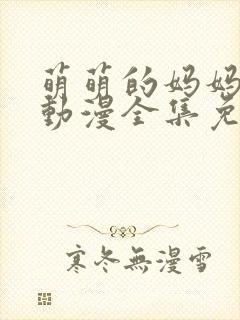 萌萌的妈妈
動漫全集免
寒冬無漫雪